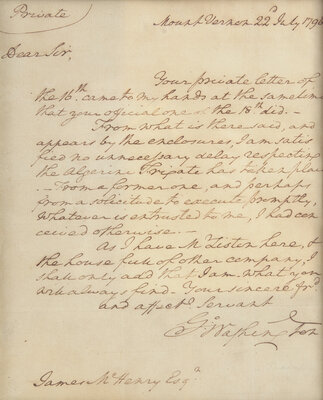 Private
Mount Vernon 22d July 1796
Dear Sir,
Your private letter of
the 16th came to my hands at the same time
that your official one of the 18th did.—
From what is there said, and
appears by the enclosures, I am satis
fied no unnecessary delay respecting
the Algerine Frigate has taken place
.— From a former one, and perhaps
from a solicitude to execute promptly,
whatever is entrusted to me, I had con
ceived otherwise.—
As I have Mr Liston here, &
the house full of other company, I
shall only add that I am what you
will always find— Your sincere frd
and affecte Servant
Go Washington
James McHenry Esqr